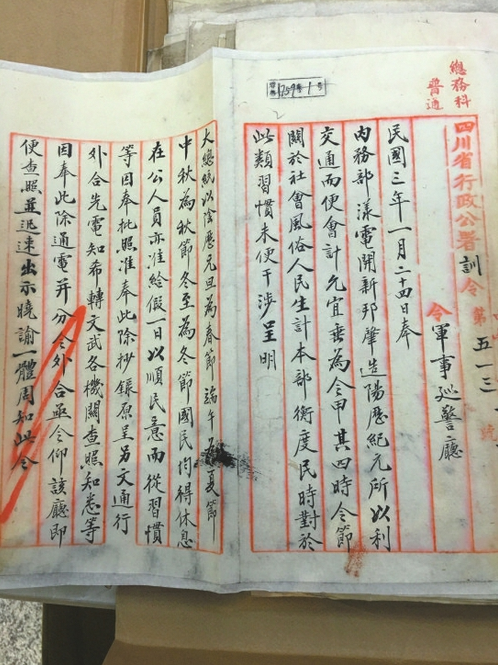 總務科
普通
四川省行政公署訓令
第五一三
令軍事巡警廳
民國三年一月二十四日奉
內務部漾電開新邦肇造陽歷紀元所以利
交通而便會計允宜垂為令甲其四時令節
關於社會風俗人民生計本部衡度民時對於
此類習慣未便干涉呈明
大總統以陰歷元旦為春節端午為夏節
中秋為秋節冬至為冬節國民均得休息
在公人員亦准給假一日以順民意而從習慣
等因奉批照准奉此除抄錄原呈另文通行
外合先電知希轉文武各機關查照知悉等
因奉此除通電并分令外合亟令仰該廳即
便查照並迅速出示曉諭一體周知此令